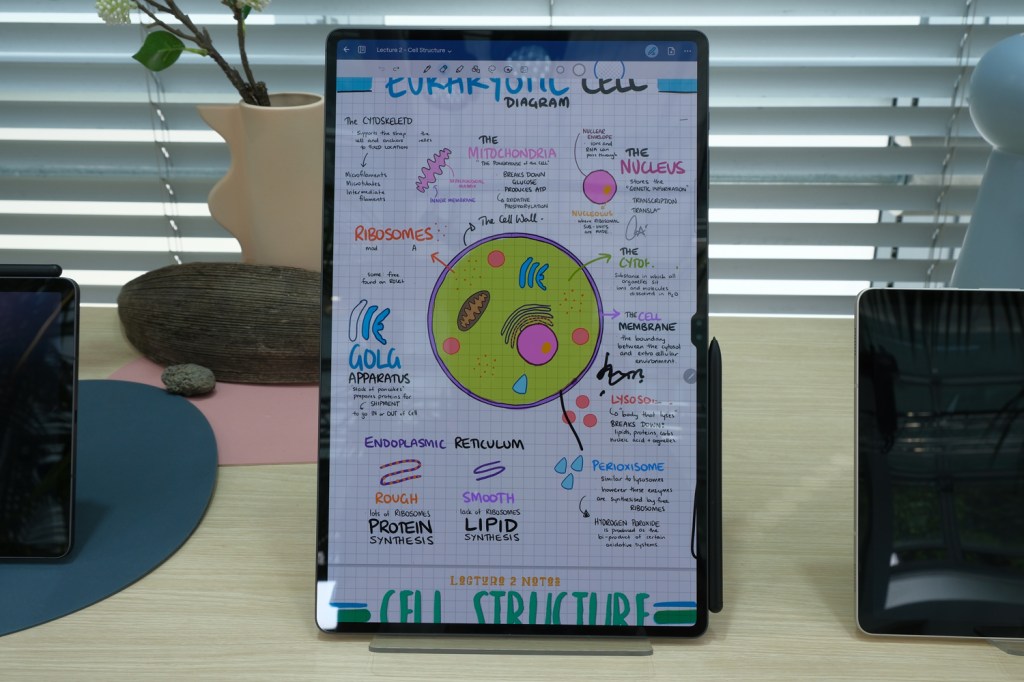 Lecture 2 - Cell Structure
EUKARYOTIC CELL
DIAGRAM
The CYTOSKELETO
Supports the shap the
cell and anchors
to FIXED LOCATION
Microfilaments
Microtubules
Intermediate
filaments
THE
MITOCHONDRIA
"The Powerhouse of the Cell"
BREAKS DOWN
GLUCOSE
PRODUCES ATP
OXIDATIVE
PHOSPHORYLATION
INNER MEMBRANE
NUCLEAR
ENVELOPE
RNA can
pass through
THE
NUCLEUS
Stores the
"GENETIC INFORMATION"
TRANSCRIPTION
TRANSLAT
NUCLEOLUS
where RIBOSOMAL
SUB-UNITS
are MADE
The Cell Wall.
RIBOSOMES
mad A
Some free
found on RER
THE
CYTO
Substance in which all
organelles sit
ions and molecules
dissolved in H2O
THE CELL
MEMBRANE
the boundary
between the cytosol
and extra cellular
environment.
GOLG
APPARATUS
"Stack of pancakes"
prepares proteins for
SHIPMENT
to go IN or OUT of Cell
LYSOSO
"body that lyses"
BREAKS DOWN:
lipids, proteins, carbs
nucleic acid + organelles
ENDOPLASMIC RETICULUM
ROUGH
lots of RIBOSOMES
PROTEIN
SYNTHESIS
SMOOTH
lack of RIBOSOMES
LIPID
SYNTHESIS
PERIOXISOME
Similar to lysosomes
however these enzymes
are synthesised by free
RIBOSOMES
HYDROGEN PEROXIDE
is produced as the
bi-product of certain
oxidative systems
LECTURE 2 NOTES
CELL STRUCTURE